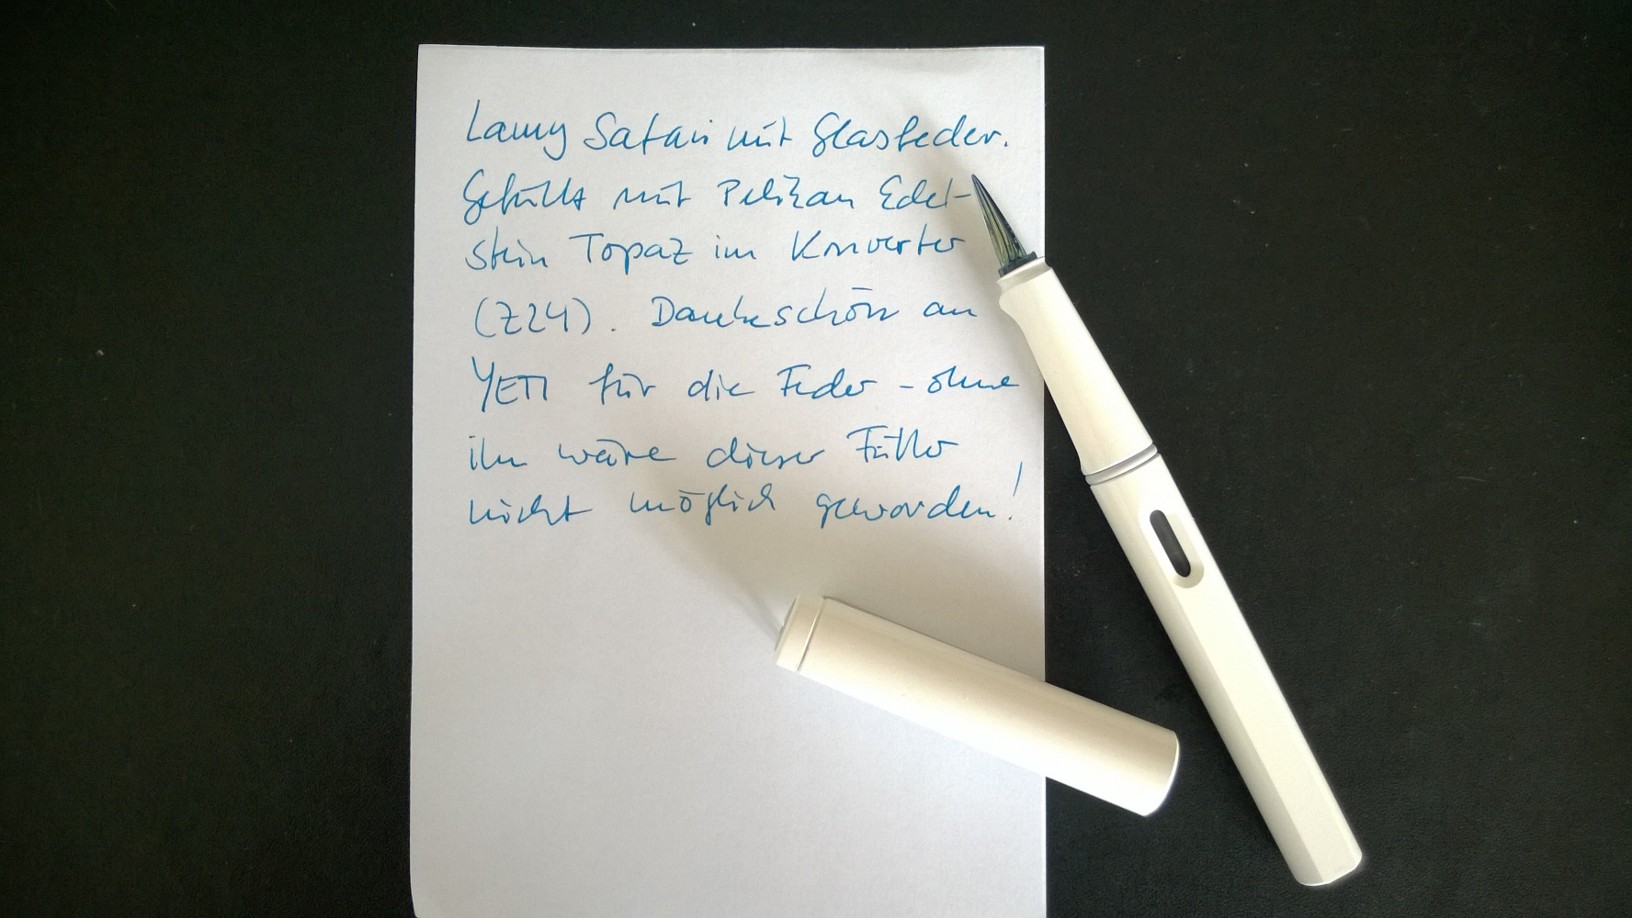 Lamy Safari mit Glasfeder.
Gefüllt mit Pelikan Edel-
stein Topaz im Konverter
(Z24). Dankeschön an
YETI für die Feder - ohne
ihn wäre dieser Füller
nicht möglich geworden!